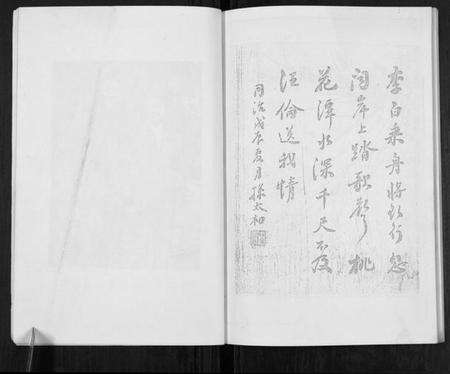 李白乘舟將欲行忽
闻岸上踏歌聲桃
花潭水深千尺不及
汪倫送我情
同治戊辰夏月孫太和